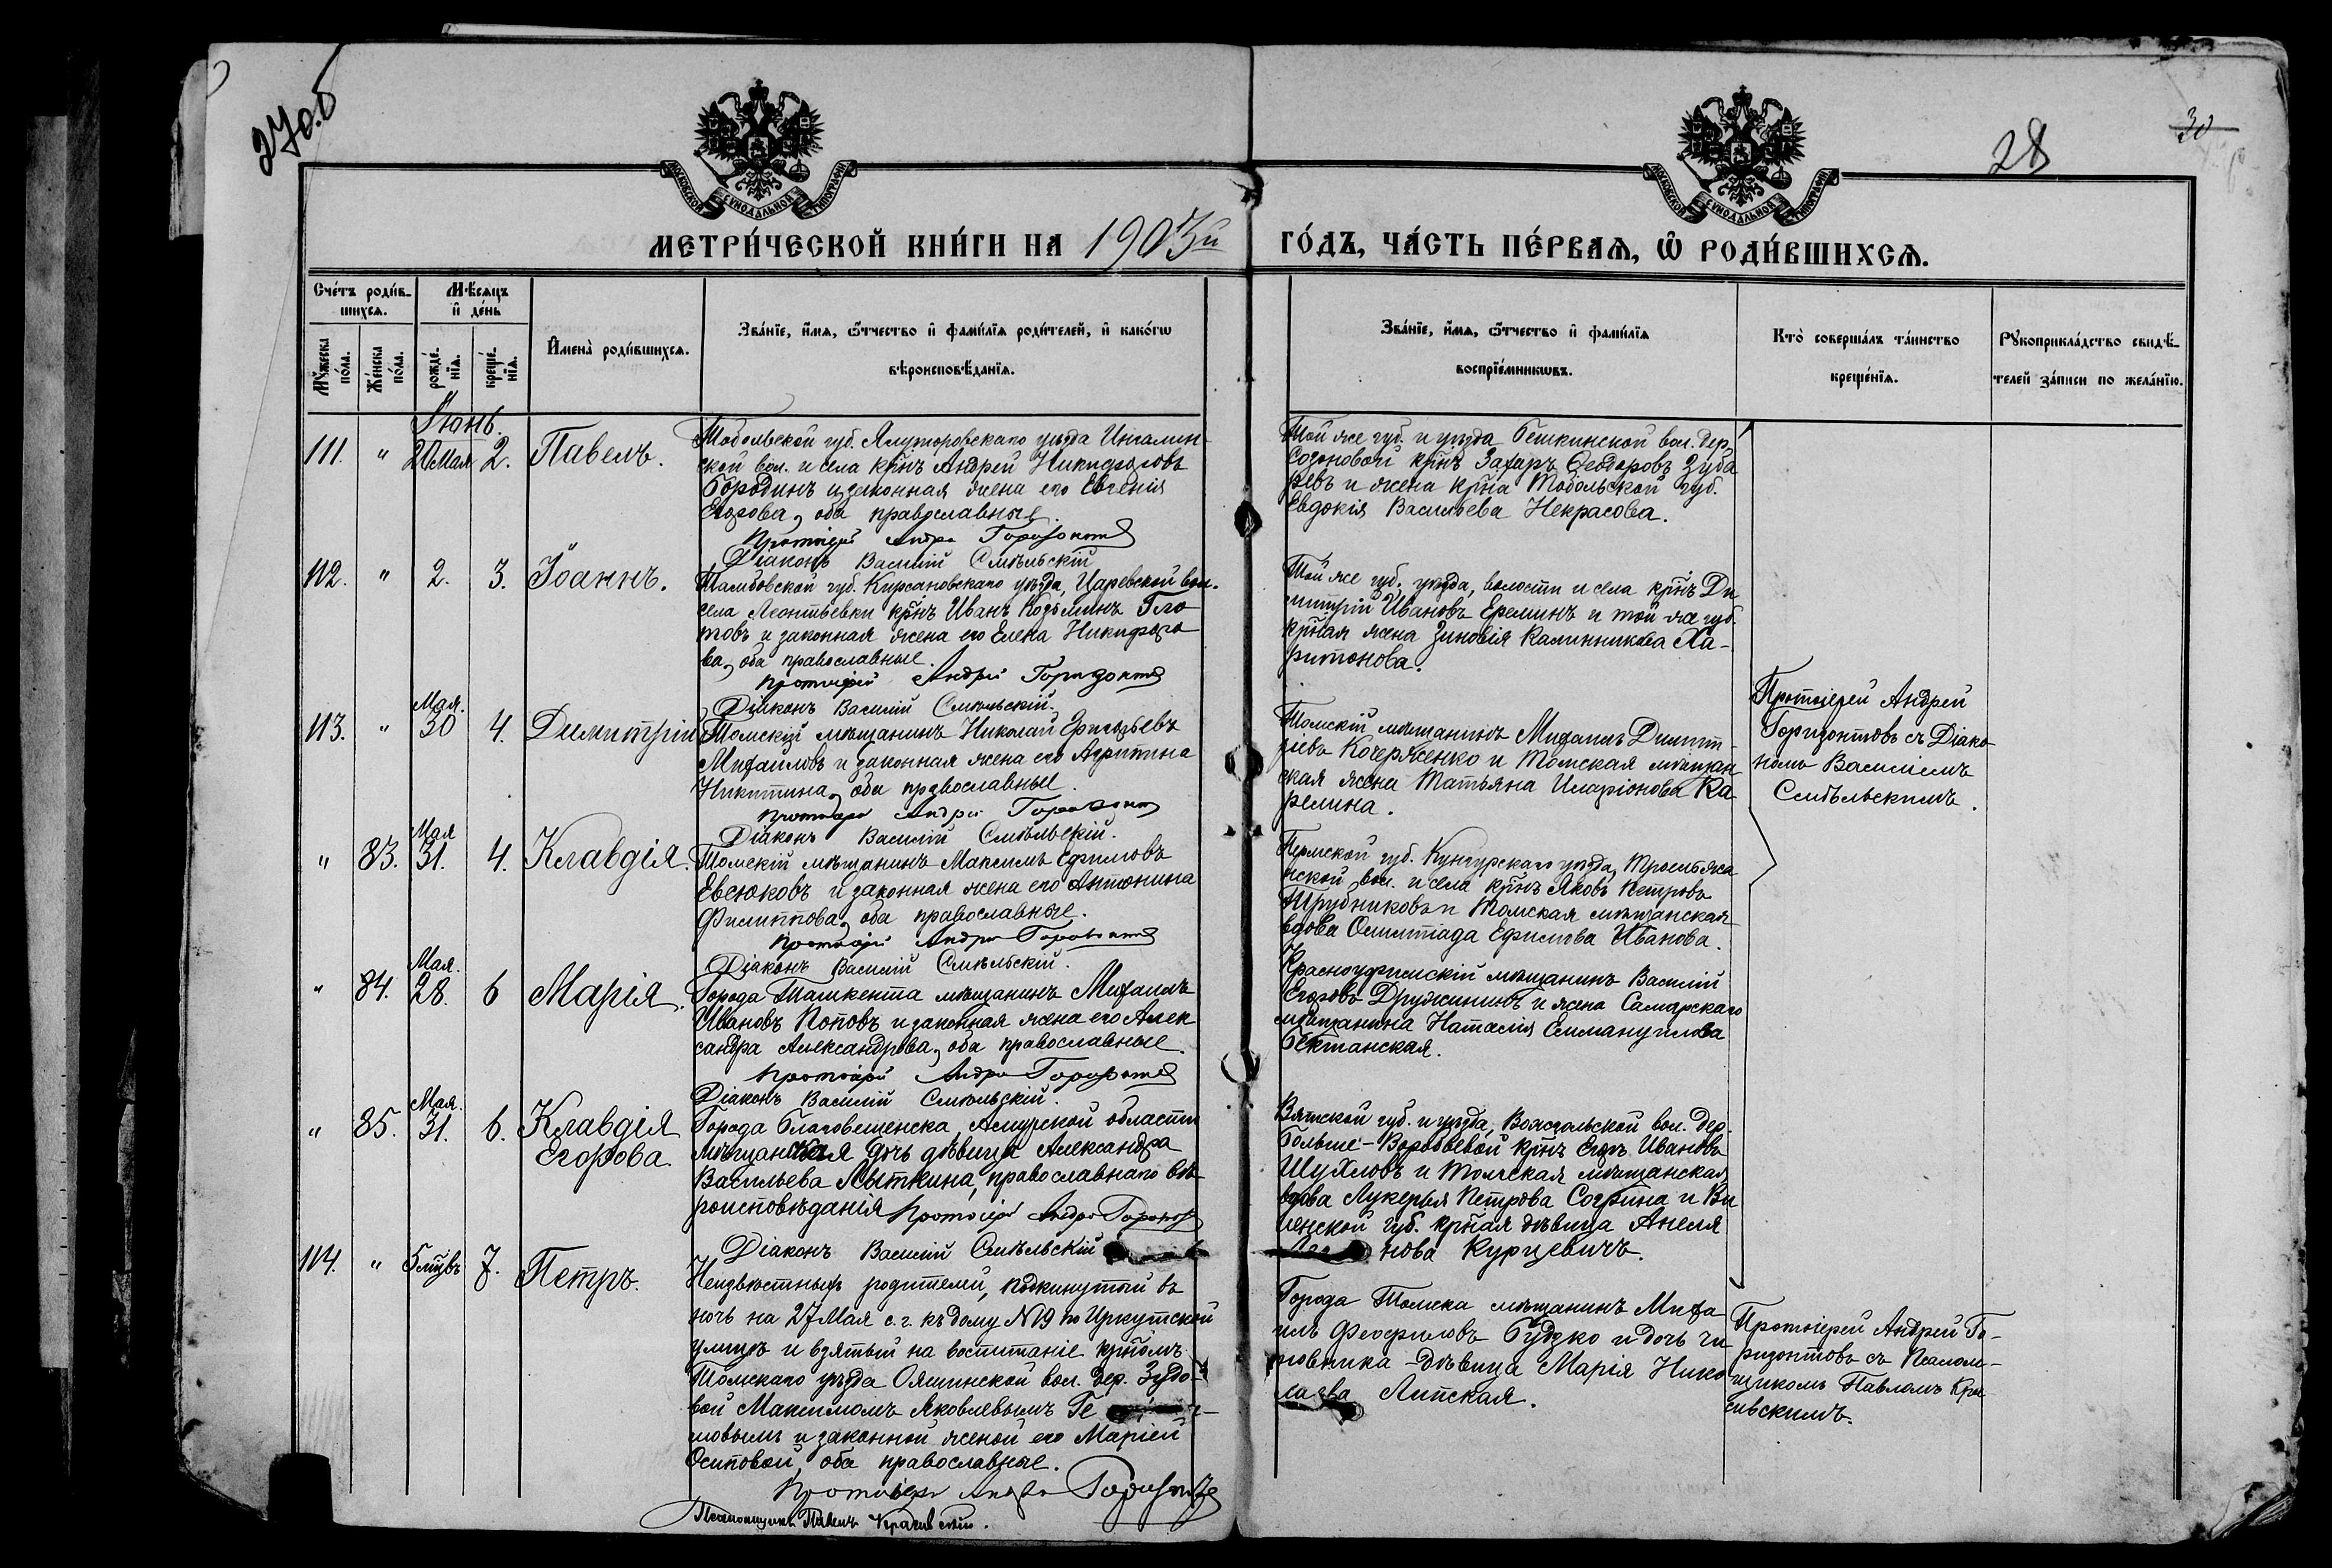 27об
28
30
МОСКОВСКОЙ СѴНОДАЛЬНОЙ ТИПОГРАФІИ
МОСКОВСКОЙ СѴНОДАЛЬНОЙ ТИПОГРАФІИ
МЕТРИ́ЧЕСКОЙ КНИ́ГИ НА 1903й ГО́ДЪ, ЧА́СТЬ ПЕ́РВАѦ, Ѡ҆ РОДИ́ВШИХСѦ.
Сче́тъ роди́в-
шихсѧ.
Мꙋ́жеска по́ла.
Же́нска по́ла.
Мѣ́сѧцъ
и҆ де́нь
рожде́-
нїѧ.
креще́-
нїѧ.
И҆мена̀ роди́вшихсѧ.
Зва́нїе, и҆́мѧ, ѻ҆́тчество и҆ фами́лїѧ роди́телей, и҆ како́гѡ
вѣроисповѣ́данїѧ.
Зва́нїе, и҆́мѧ, ѻ҆́тчество и҆ фами́лїѧ
воспрїе́мникѡвъ.
Кто̀ соверша́лъ та́инство
креще́нїѧ.
Рꙋкоприкла́дство свидѣ́-
телей за́писи по жела́нїю.
Іюнь.
111. " 20 Мая 2. Павелъ.
Тобольской губ. Ялуторовскаго уѣзда Ингалин-
ской вол. и села крнъ Андрей Никифоровъ
Бородинъ и законная жена его Евгенія
Егорова, оба православные.
Протоіерей Андрей Горизонтовъ
Діаконъ Василій Смѣльскій
Той же губ. и уѣзда Бешкинской вол. дер.
Созоновой крнъ Захаръ Ѳеодоровъ Зуба
ревъ и жена крна Тобольской губ.
Евдокія Васильева Некрасова.
112. " 2. 3. Іоаннъ.
Тамбовской губ. Кирсановскаго уѣзда, Царевской вол.
села Леонтьевки крнъ Иванъ Козьминъ Гло
товъ и законная жена его Елена Никифоро
ва, оба православные.
Протоіерей Андрей Горизонтовъ
Діаконъ Василій Смѣльскій.
Той же губ., уѣзда, волости и села крнъ Ди
митрій Ивановъ Ереминъ и той же губ.
крная жена Зиновія Калинникова Ха-
ритонова.
113. " Мая. 30 4. Димитрій
Томскій мѣщанинъ Николай Григорьевъ
Михайловъ и законная жена его Агрипина
Никитина, оба православные
Протоіерей Андрей Горизонтовъ
Діаконъ Василій Смѣльскій.
Томскій мѣщанинъ Михаилъ Димит-
ріевъ Кочерженко и Томская мѣщан
ская жена Татьяна Иларіонова Ка
релина.
" 83. Мая 31. 4. Клавдія.
Томскій мѣщанинъ Максимъ Ефимовъ
Евсюковъ и законная жена его Антонина
Филиппова, оба православные.
Протоіерей Андрей Горизонтовъ
Діаконъ Василій Смѣльскій.
Пермской губ. Кунгурскаго уѣзда,
нской вол. и села крнъ Яковъ Петровъ
Трубниковъ и Томская мѣщанская
вдова Олимпіада Ефимова Иванова.
" 84. Мая. 28. 6 Марія.
Города Ташкента мѣщанинъ Михаилъ
Ивановъ Поповъ и законная жена его Алек
сандра Александрова, оба православные.
Протоіерей Андрей Горизонтовъ
Діаконъ Василій Смѣльскій.
Красноуфимскій мѣщанинъ Василій
Егоровъ Дружининъ и жена Самарскаго
мѣщанина Наталія Еммануилова
Бектанская.
" 85. Мая. 31. 6. Клавдія
Егорова.
Города Благовещенска, Амурской области
мѣщанская дочь дѣвица Александра
Васильева Лыткина, православнаго вѣ
роисповѣданія Протоіерей Андрей Горизонтовъ
Діаконъ Василій Смѣльскій
Вятской губ. и уѣзда, Вожгальской вол. дер.
Больше-Воробьевой крнъ Егоръ Ивановъ
и Томская мѣщанская
вдова Лукерья Петрова Согрина и Ви
ленской губ. крная дѣвица Анеля
нова Курцевичъ.
Протоіерей Андрей
Горизонтовъ съ Діако
номъ Василіемъ
Смѣльскимъ.
114. " 7. Петръ.
Неизвѣстныхъ родителей, подкинутый въ
ночь на 27 Мая с. г. къ дому № 19 по Иркутской
улицѣ и взятый на воспитаніе крномъ
Томскаго уѣзда Ояшинской вол. дер. Зудо-
вой Максимомъ Яковлевымъ Ге
мовымъ и законной женой его Маріей
Осиповой, оба православные.
Протоіерей Андрей Горизонтовъ
Псаломщикъ Павелъ
Города Томска мѣщанинъ Миха
илъ Феофиловъ Будзко и дочь чи
новника дѣвица Марія Нико
лаева Липская.
Протоіерей Андрей Го-
ризонтовъ съ Псалом-
щикомъ Павломъ